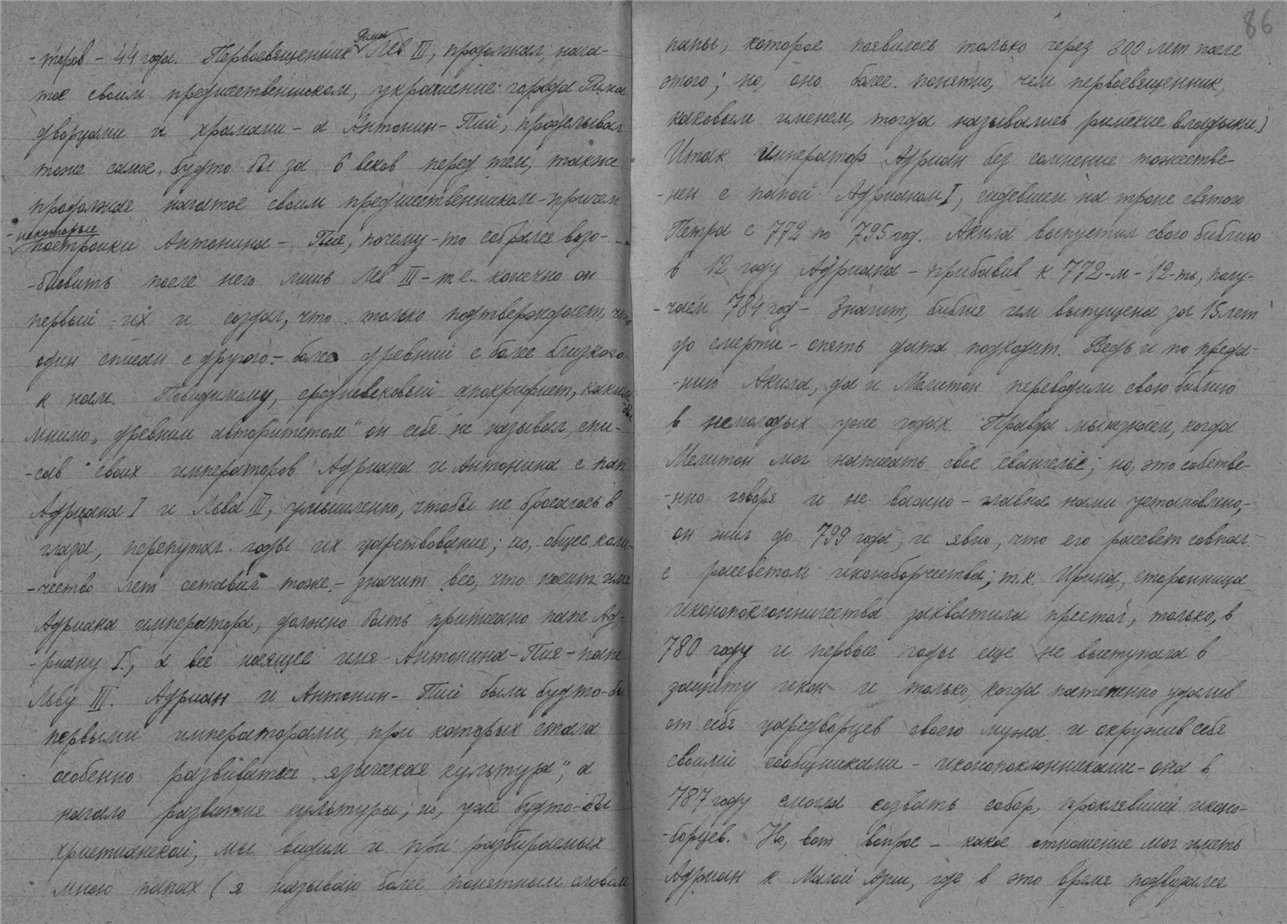 -теров – 44 года. Первосвященник Рима Лев III, продолжал, нача-
тое своим предшественником, украшение города Рима
дворцами и храмами – а Антонин-Пий, проделывал
тоже самое, будто бы за 6 веков перед тем, также
продолжая начатое своим предшественником – причем
некоторые
постройки Антонина – Пия, почему-то собрался возо-
-бновить после него лишь Лев III – т.е. конечно он
первый их и создал, что только подтверждает, что
один списан с другого – более древний с более близкого
к нам. Повидимому, средневековый апокрифист, каким-бы
мнимо „древним авторитетом" он себя не называл, спи-
-сав своих императоров Адриана и Антонина с пап
Адриана I и Льва III, умышленно, чтобы не бросалось в
глаза, перепутал годы их царствования; но, общее коли-
-чество лет оставил тоже – значит все, что носит имя
Адриана императора, должно быть приписано папе Ад-
-риану I, а все носящее имя Антонина-Пия – папе
Льву III. Адриан и Антонин-Пий были будто-бы
первыми императорами, при которых стала
особенно развиваться „языческая культура", а
начало развития культуры; но, уже будто-бы
христианской, мы видим и при разбираемых
мною папах (я называю более понятным словом
86
папы, которое появилось только через 300 лет после
этого; но, оно более понятно, чем первосвященник,
каковым именем, тогда назывались римские владыки.)
Итак император Адриан без сомнение тожестве-
-нен с папой Адрианом I, сидевшем на троне святого
Петра с 772 по 795 год. Акила выпустил свою библию
в 12 году Адриана – прибавив к 772-м – 12-ть, полу-
-чаем 784 год – Значит, библия им выпущена за 15 лет
до смерти – опять дата подходит. Ведь и по преда-
-нию Акила, да и Мелитон переводили свою библию
в немолодых уже годах. Правда мы незнаем, когда
Мелитон мог написать свое евангелье; но, это собстве-
-нно говоря и не важно – главное нами установлено,–
он жил до 799 года, и явно, что его расцвет совпал
с расцветом иконоборчества; т.к. Ирина, сторонница
иконопоклонничества захватила престол, только, в
780 году и первые годы еще не выступала в
защиту икон и только, когда постепенно удалив
от себя царедворцев своего мужа и окружив себя
своими сообщниками – иконопоклонниками – она в
787 году смогла созвать собор, проклявший иконо-
-борцев. Но, вот вопрос – какое отношение мог иметь
Адриан к Малой Азии, где в это время подвизался